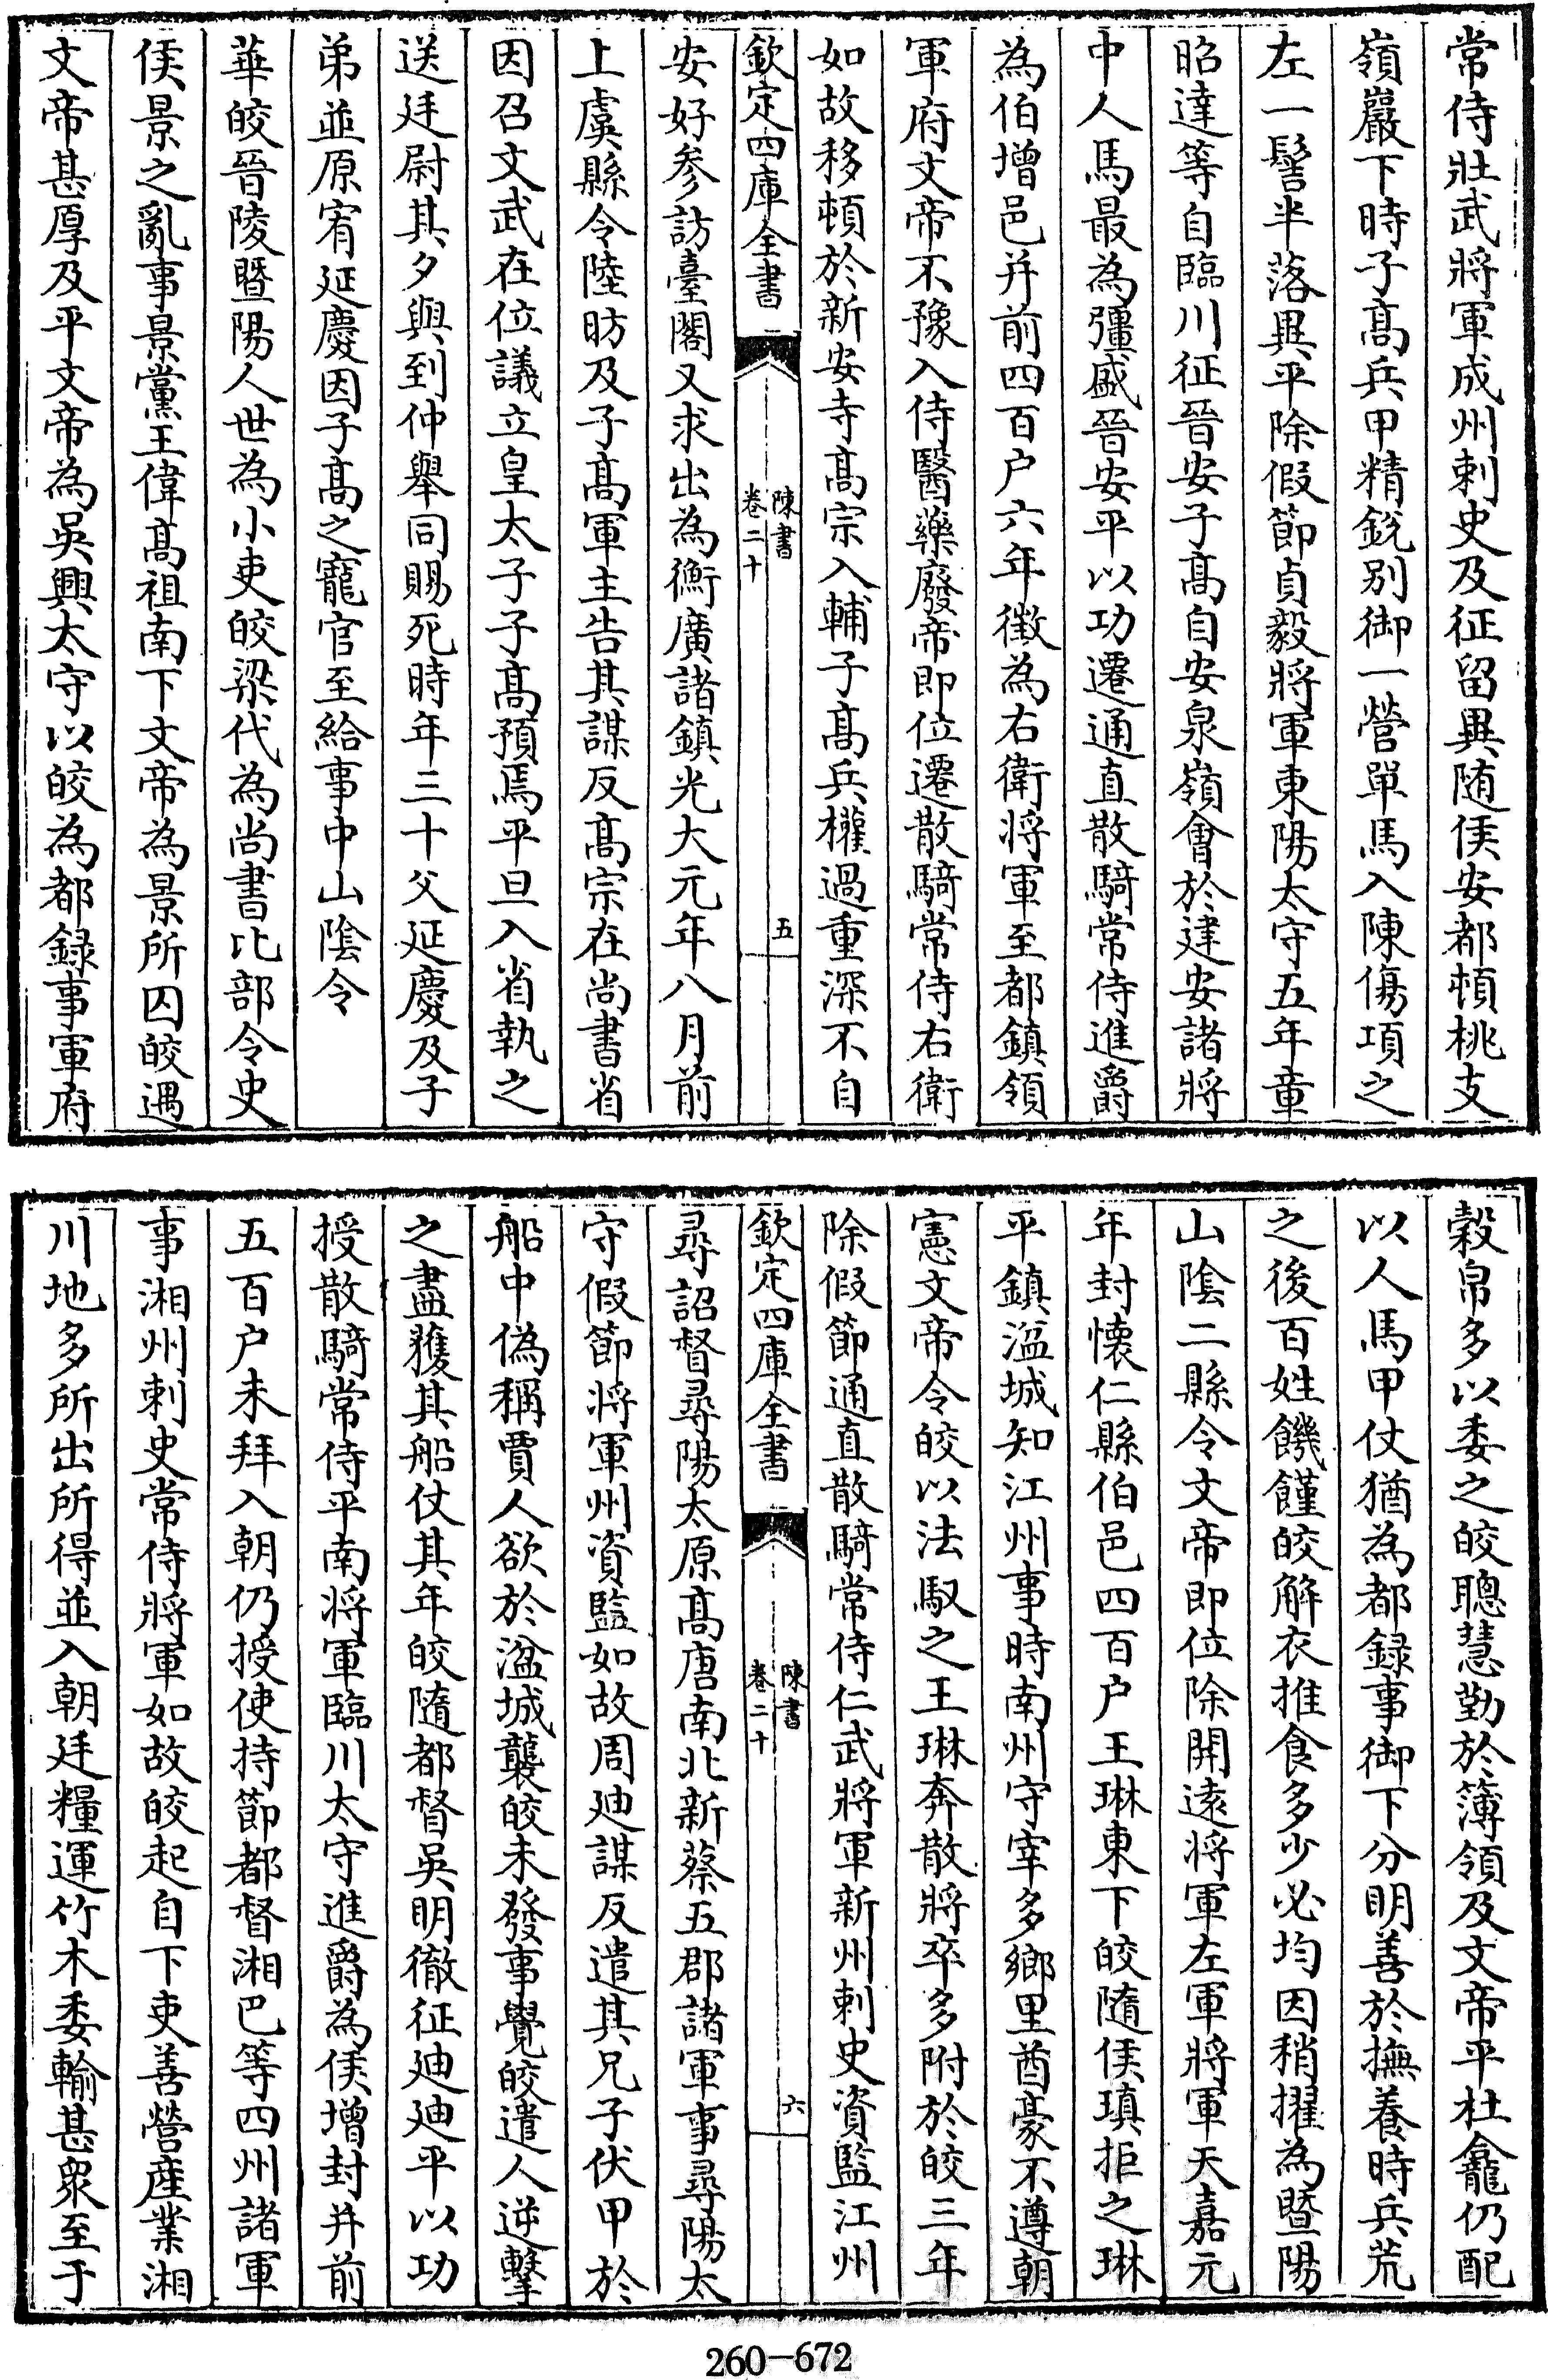 常侍壯武將軍成州刺史及征留異随侯安都頓桃支
嶺巖下時子髙兵甲精鋭别御一營單馬入陳傷項之
左一髻半落異平除假節貞毅將軍東陽太守五年章
昭達等自臨川征晉安子髙自安泉嶺會於建安諸將
中人馬最為彊盛晉安平以功遷通直散騎常侍進爵
為伯增邑并前四百户六年徴為右衛將軍至都鎮領
軍府文帝不豫入侍醫藥廢帝即位遷散騎常侍右衛
如故移頓於新安寺髙宗入輔子髙兵權過重深不自
欽定四庫全書
陳書
卷二十
五
安好参訪臺閣又求出為衡廣諸鎮光大元年八月前
上虞縣令陸昉及子髙軍主告其謀反髙宗在尚書省
因召文武在位議立皇太子子髙預焉平旦入省執之
送廷尉其夕與到仲舉同賜死時年三十父延慶及子
弟並原宥延慶因子髙之寵官至給事中山隂令
華皎晉陵暨陽人世為小吏皎梁代為尚書比部令史
侯景之亂事景黨王偉髙祖南下文帝為景所囚皎遇
文帝甚厚及平文帝為吳興太守以皎為都録事軍府
穀帛多以委之皎聰慧勤於簿領及文帝平杜龕仍配
以人馬甲仗猶為都録事御下分明善於撫養時兵荒
之後百姓饑饉皎解衣推食多少必均因稍擢為暨陽
山陰二縣令文帝即位除開遠將軍左軍將軍天嘉元
年封懷仁縣伯邑四百户王琳東下皎隨侯瑱拒之琳
平鎮湓城知江州事時南州守宰多鄉里酋豪不遵朝
憲文帝令皎以法馭之王琳奔散將卒多附於皎三年
除假節通直散騎常侍仁武將軍新州刺史資監江州
欽定四庫全書
陳書
卷二十
六
尋詔督尋陽太原髙唐南北新蔡五郡諸軍事尋陽太
守假節將軍州資監如故周廸謀反遣其兄子伏甲於
船中偽稱賈人欲於湓城襲皎未發事覺皎遣人逆擊
之盡獲其船仗其年皎隨都督吳明徹征廸廸平以功
授散騎常侍平南將軍臨川太守進爵為侯增封并前
五百户未拜入朝仍授使持節都督湘巴等四州諸軍
事湘州刺史常侍將軍如故皎起自下吏善營産業湘
川地多所出所得並入朝廷糧運竹木委輸甚衆至于
260-672